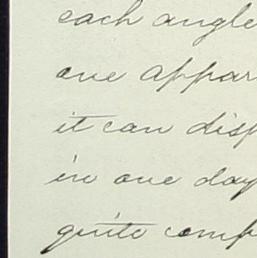 each angle
one appar
it can disp
in one day
quite comp